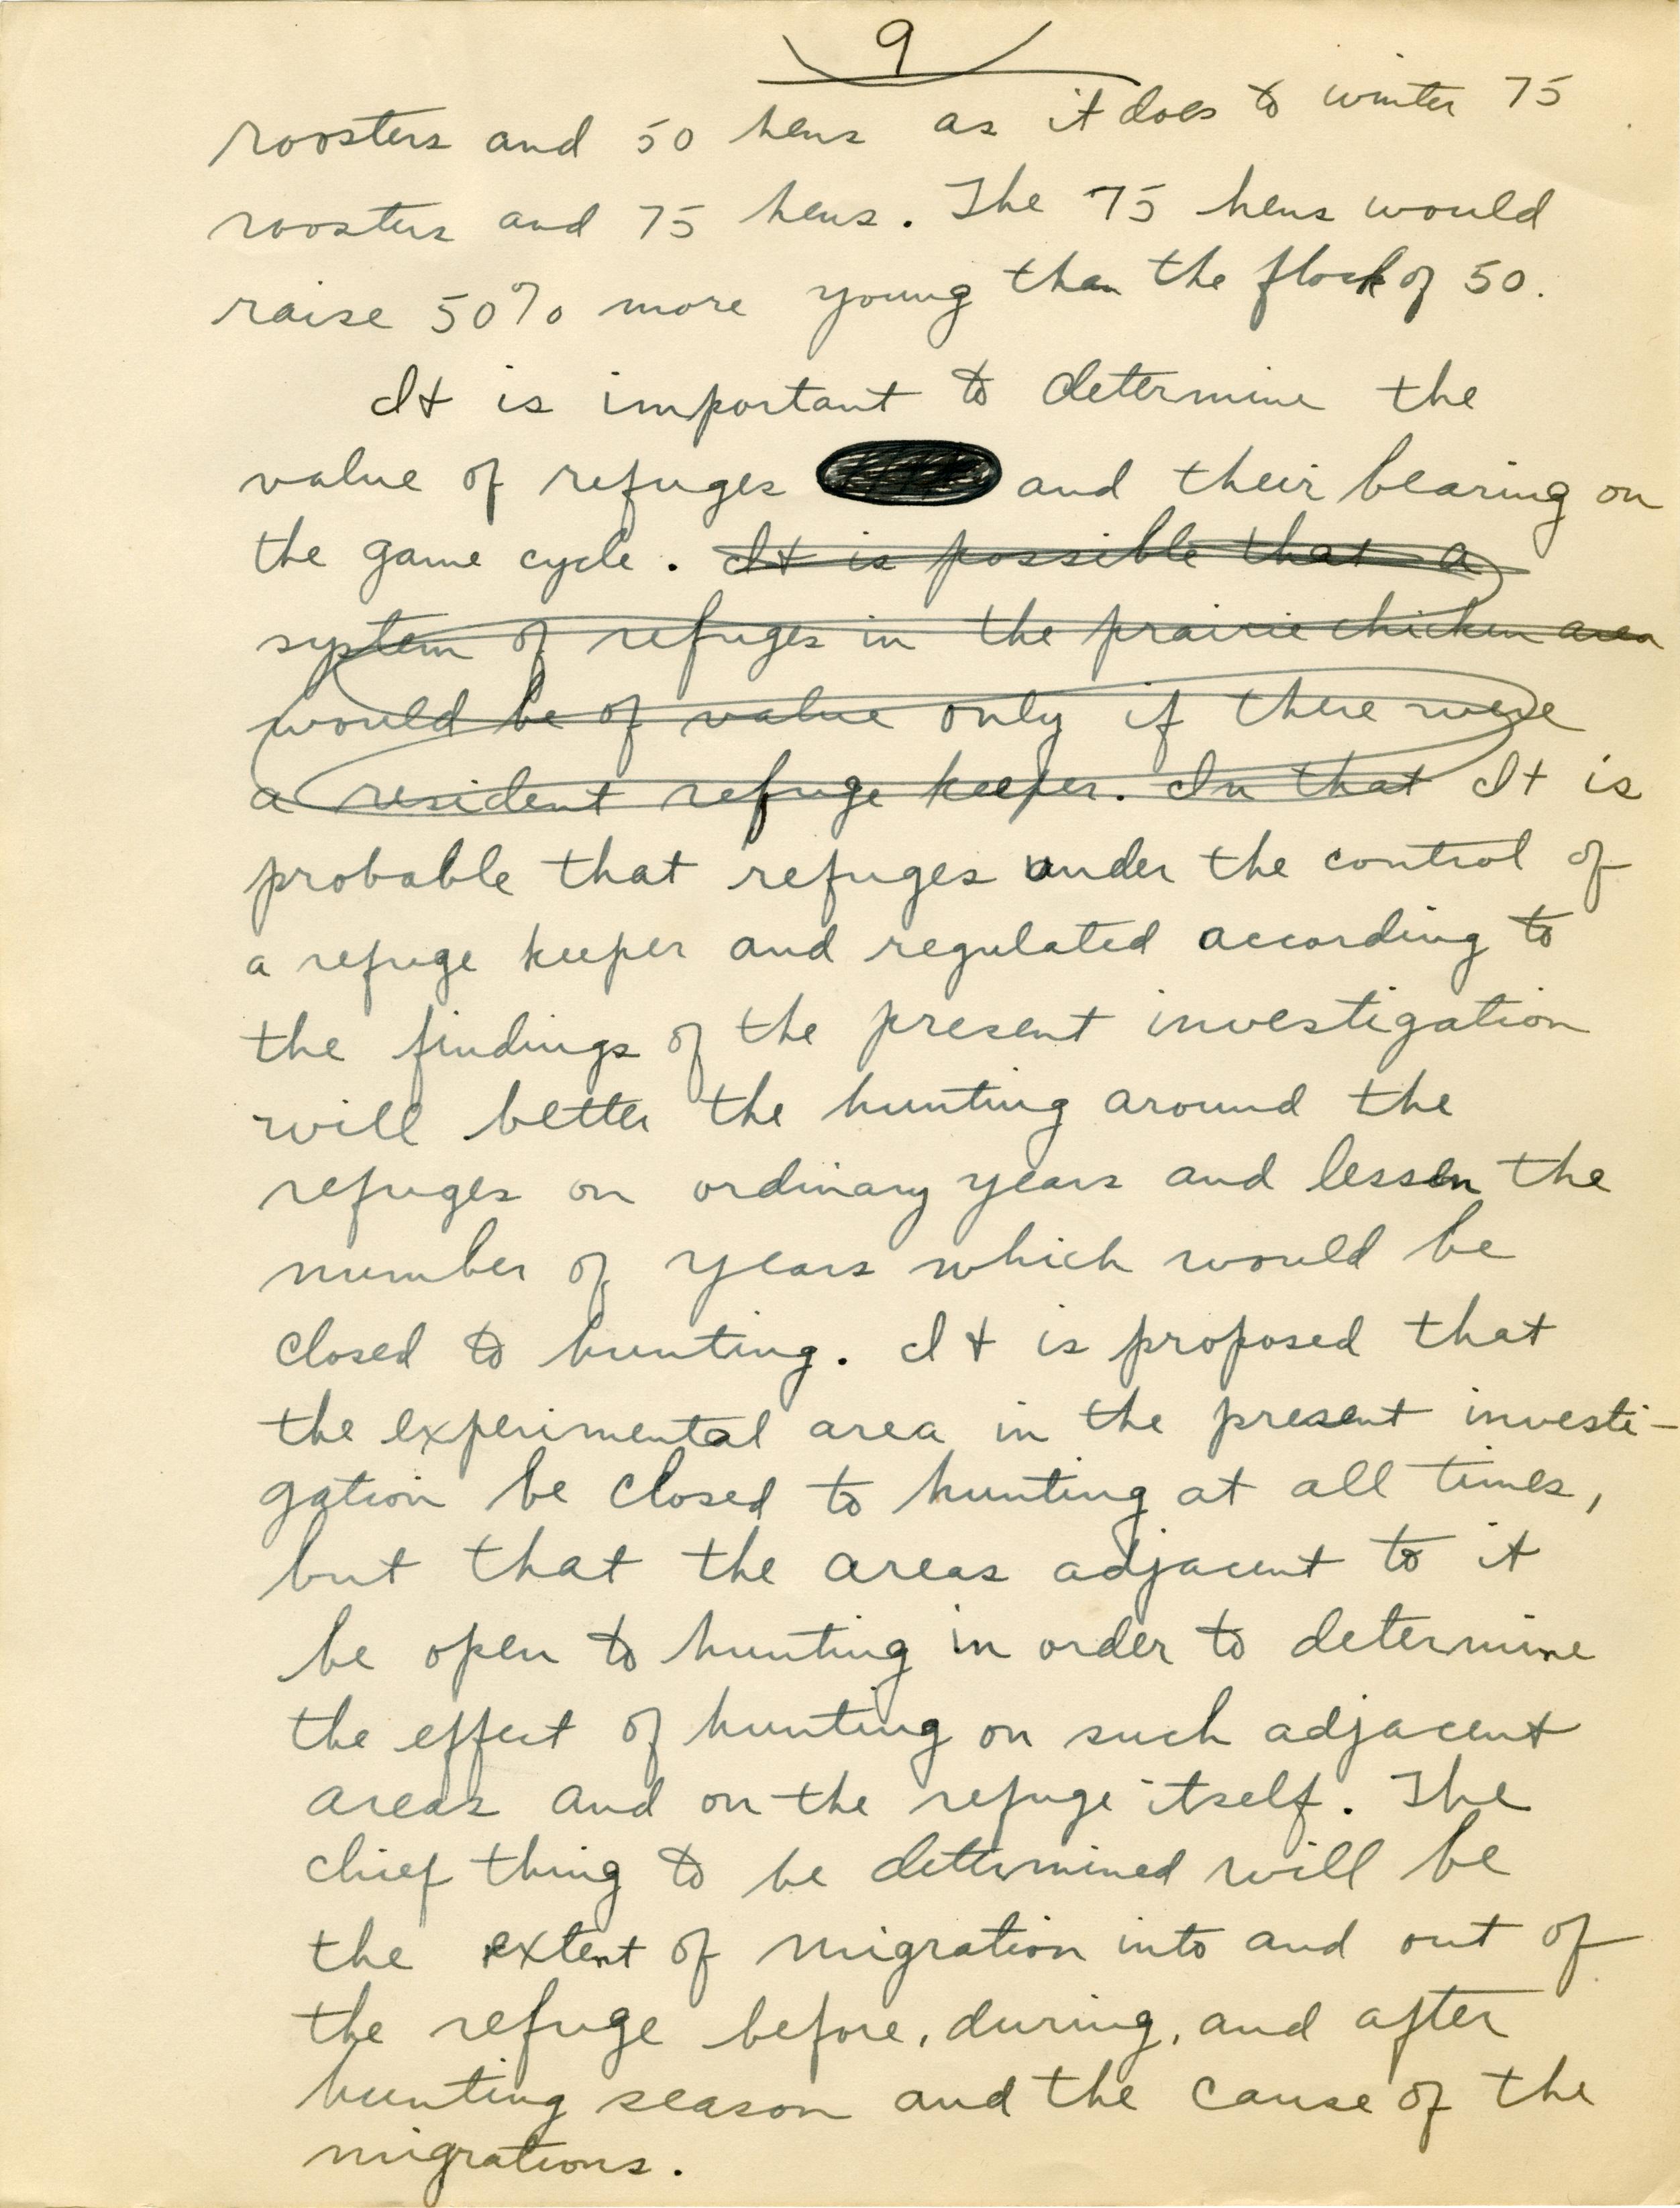 9
roosters and 50 hens as it does to winter 75
roosters and 75 hens. The 75 hens would
raise 50% more young than the flock of 50.
It is important to determine the
value of refuges and their bearing on
the game cycle. It is possible that a
system of refuges in the prairie chicken area
would be of value only if there were
a resident refuge keeper. In that It is
probable that refuges under the control of
a refuge keeper and regulated according to
the findings of the present investigation
will better the hunting around the
refuges on ordinary years and lessen the
number of years which would be
closed to hunting. It is proposed that
the experimental area in the present investi-
gation be closed to hunting at all times,
but that the areas adjacent to it
be open to hunting in order to determine
the effect of hunting on such adjacent
areas and on the refuge itself. The
chief thing to be determined will be
the extent of migration into and out of
the refuge before, during, and after
hunting season and the cause of the
migrations.